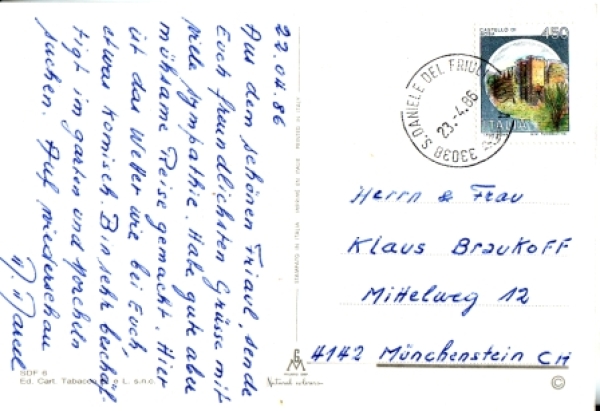 22.04.86
Aus dem schönen Friaul, sende
Euch freundlichsten Grüsse mit
viele Sympathie. Habe gute aber
mühsame Reise gemacht. Hier
ist das Wetter wie bei Euch
etwas komisch. Bin sehr beschäf-
tigt im garten und Morcheln
suchen. Auf wiederschau
Marcel
CASTELLO DI
450
ITALIA
33038 S. DANIELE DEL FRIULI
23.-4.86
Herrn & Frau
Klaus Braukoff
Mittelweg 12
4142 Münchenstein CH
SDF 6
Ed. Cart. Tabacco L. s.n.c.
©